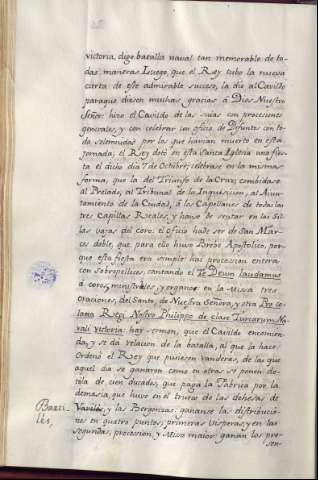 victoria, digo batalla naual tan memorable de to-
das maneras Luego, que el Rey tubo la nueua
cierta de este admirable suceso, la dio al Cavildo
paraque diesen muchas gracias á Dios Nuestro
Señor: hizo el Cavildo de las suias con procesiones
generales, y con celebrar un oficio de Difuntos con to-
da solemnidad por los que havian muerto en esta
jornada; el Rey dotó en esta Santa Iglesia una fies-
ta el dicho dia 7 de Octubre; celebrase en la misma
forma, que la del Triunfo de la Cruz; combidase
al Prelado, al Tribunal de la Inquisicion, al Aiun-
tamiento de la Ciudad, á los Capellanes de todas las
tres Capillas Reales, y hanse de sentar en las Sil-
las vajas del coro: el oficio hade ser de San Mar-
cos doble, que para ello huvo Breve Apostolico, por-
que esta fiesta era simple has procesion entera
con sobrepellices, cantando el Te Deum laudamus
á coros, ministriles, y organos en la Missa tres
oraciones, del Santo, de Nuestra Señora, y otra Pro ce-
Rege Nostro Philippo de clave Turcarum Na-
vali victoria: hay sermon, que el Cavildo encomien-
da, y se dá relacion de la batalla, al que la hace.
Ordenó el Rey que pusiesen vanderas, de las que
aquel dia se ganaron como en otras se ponen do-
tóla de cien ducados, que paga la Fabrica por la
demasia, que huvo en el trueco de las dehesas de
Bazti-
les,
y las Berganzas. gananse las distribucio-
nes en quatro puntos; primeras visperas, y en las
segundas, procesion, y Missa maior ganan los pre-
sen-